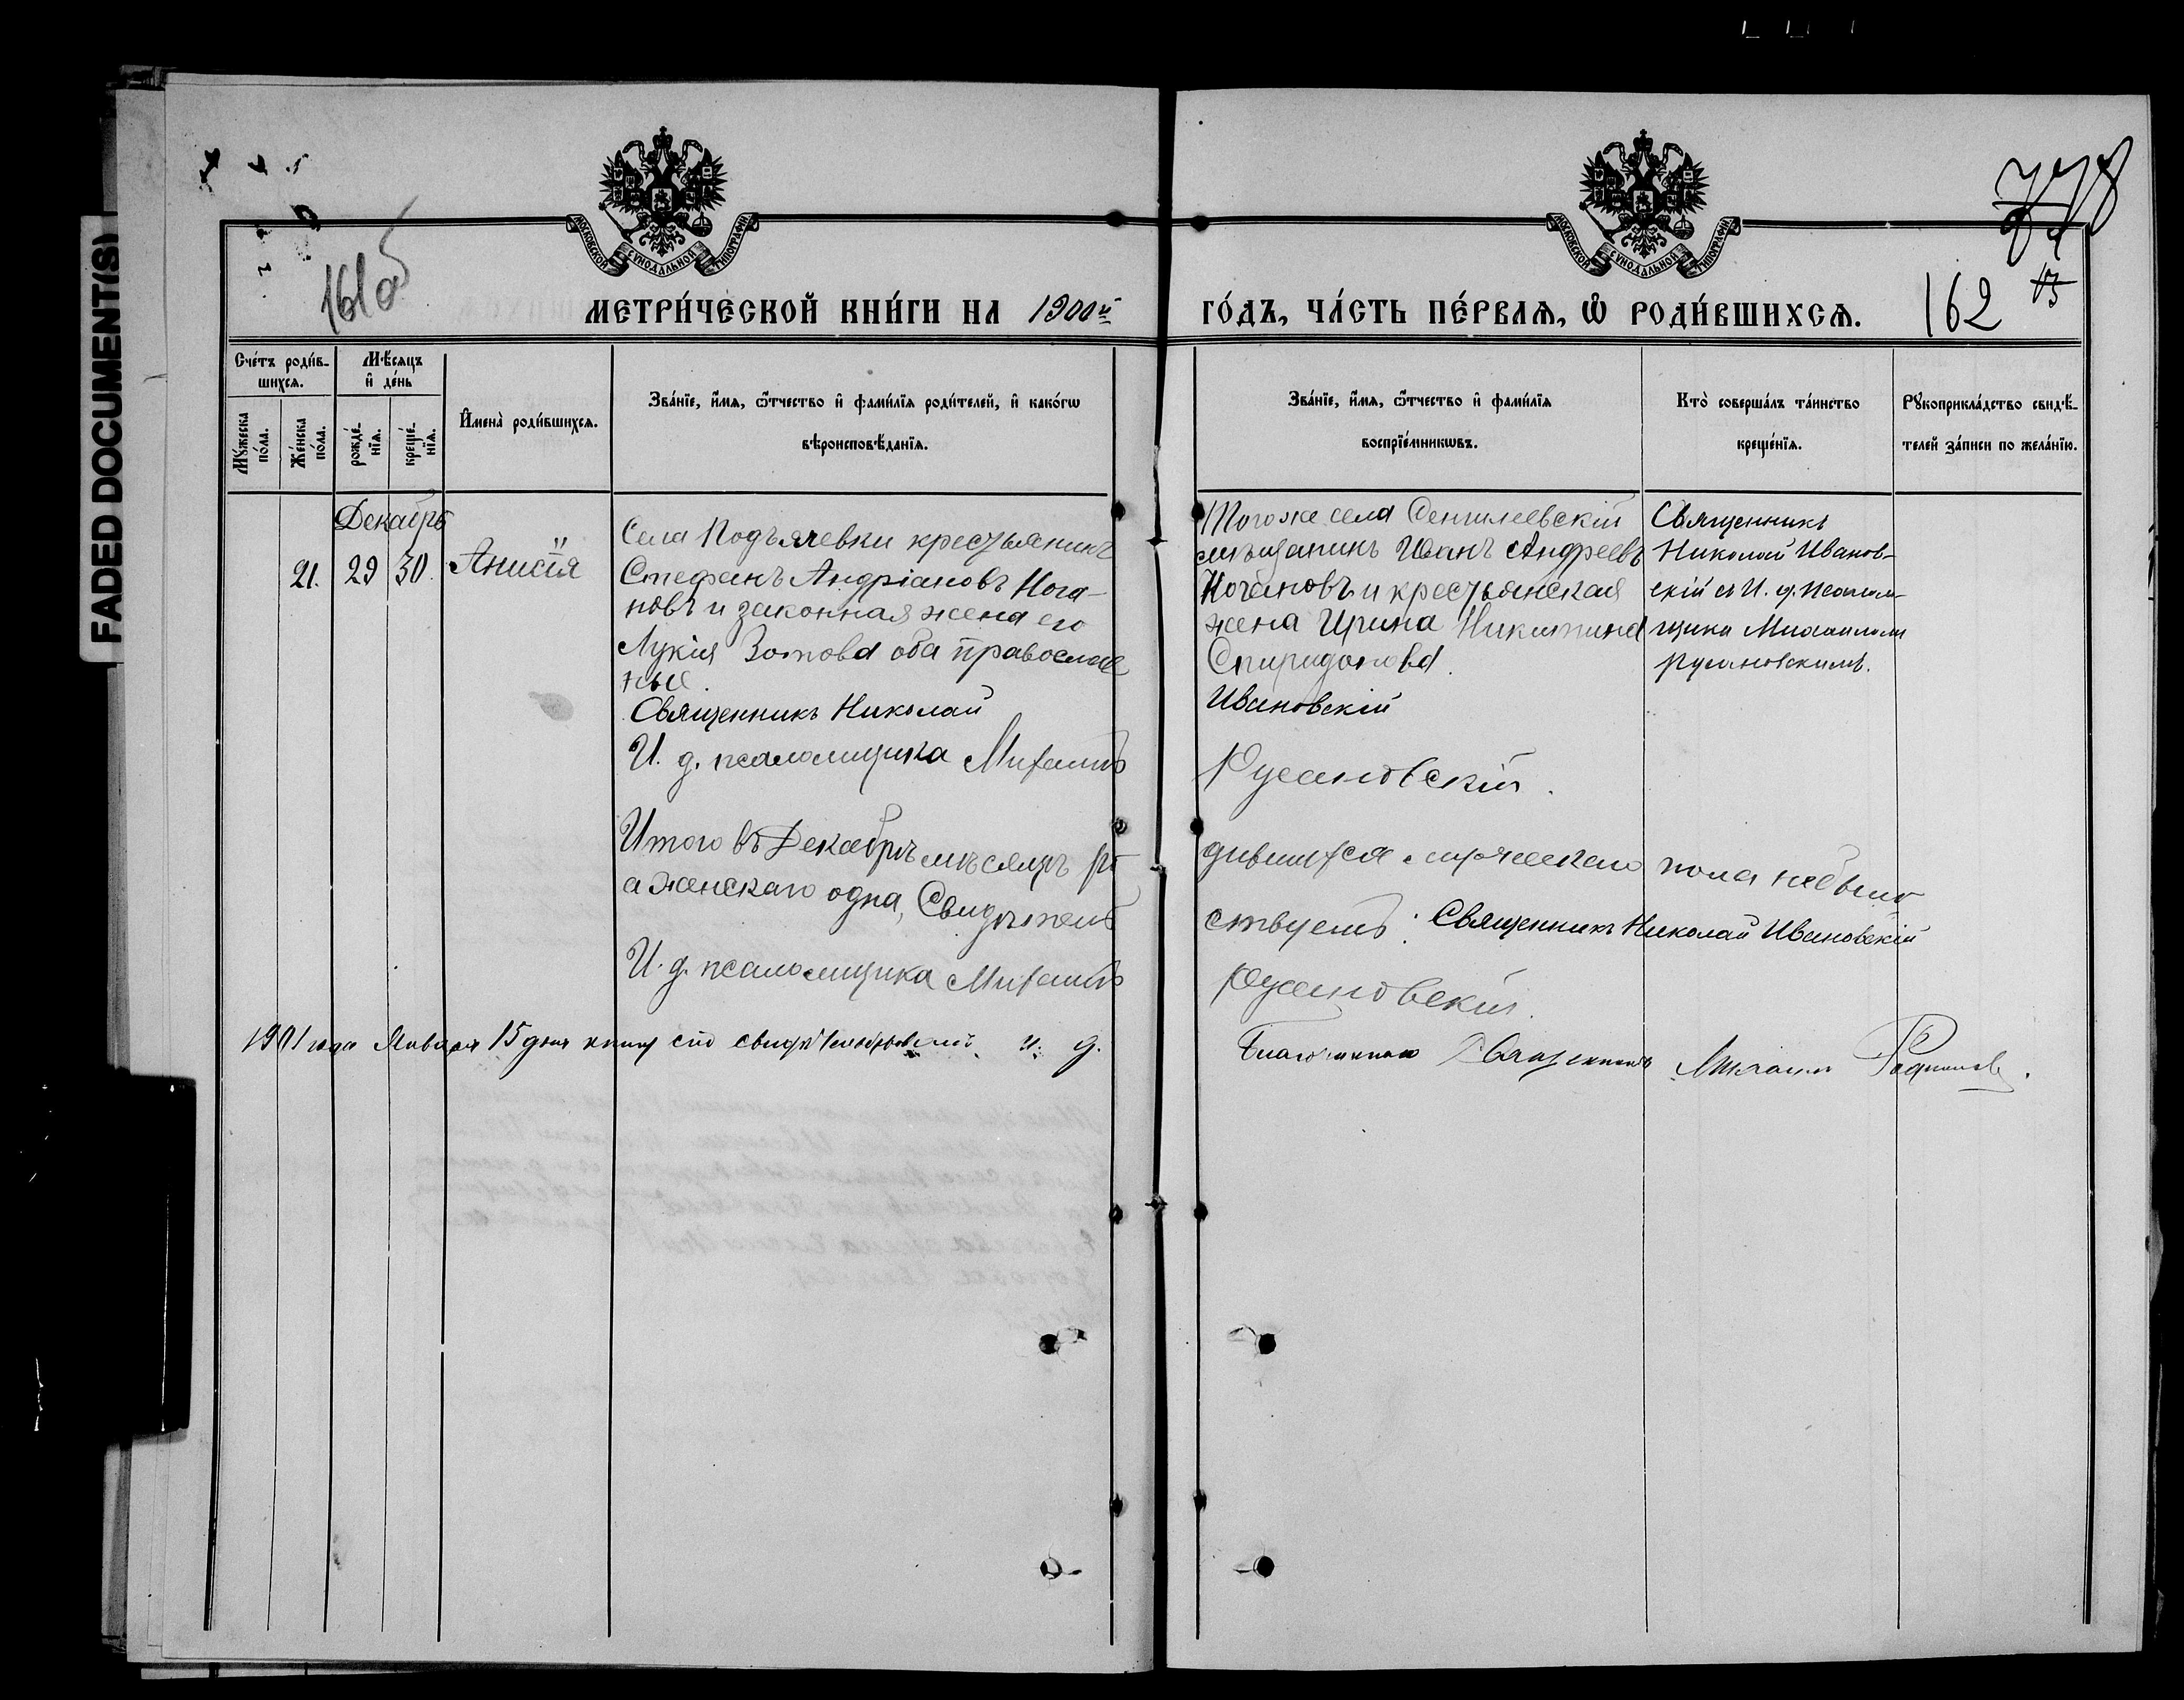 FADED DOCUMENT(S)
МОСКОВСКОЙ СѴНОДАЛЬНОЙ ТИПОГРАФІИ
МОСКОВСКОЙ СѴНОДАЛЬНОЙ ТИПОГРАФІИ
161об
162
МЕТРИ́ЧЕСКОЙ КНИ́ГИ НА 1900й
ГО́ДЪ, ЧА́СТЬ ПЕ́РВАѦ, Ѡ҆ РОДИ́ВШИХСѦ.
Сче́тъ роди́в-
шихсѧ.
Мꙋ́жеска
по́ла.
Же́нска
по́ла.
Мѣ́сѧцъ
и҆ де́нь
рожде́-
нїѧ.
креще́-
нїѧ.
И҆мена̀ роди́вшихсѧ.
Зва́нїе, и҆́мѧ, ѻ҆́тчество и҆ фамѝлїѧ роди́телей, и҆ како́гѡ
вѣроисповѣ́данїѧ.
Зва́нїе, и҆́мѧ, ѻ҆́тчество и҆ фами́лїѧ
воспрїе́мникѡвъ.
Кто̀ соверша́лъ та́инство
креще́нїѧ.
Рꙋкоприкла́дство свидѣ́-
телей за́писи по жела́нїю.
Декабрь
21. 29 30. Анисія
Села Подъячевки крестьянинъ
Стефанъ Андріановъ Нога-
новъ и законная жена его
Лукія Зотова оба православ
ные.
Священникъ Николай
И. д. псаломщика Михаилъ
Тогоже села Сенгилеевскій
мѣщанинъ Иванъ Андреевъ
Кочановъ и крестьянская
жена Ирина Никитина
Спиридонова.
Ивановскій
Русановскій.
Священникъ
Николай Иванов-
скій съ И. д. псалом-
щика Михаиломъ
Русановскимъ.
Итого въ Декабрѣ мѣсяцѣ ро
дившихся мужескаго пола небыло
а женскаго одна, Свидѣтель
ствуетъ: Священникъ Николай Ивановскій
И. д. псаломщика Михаилъ
Русановскій.
1901 года Января 15 дня книгу сію свидѣтельствовалъ и. д.
Благочиннаго Священникъ Михаилъ